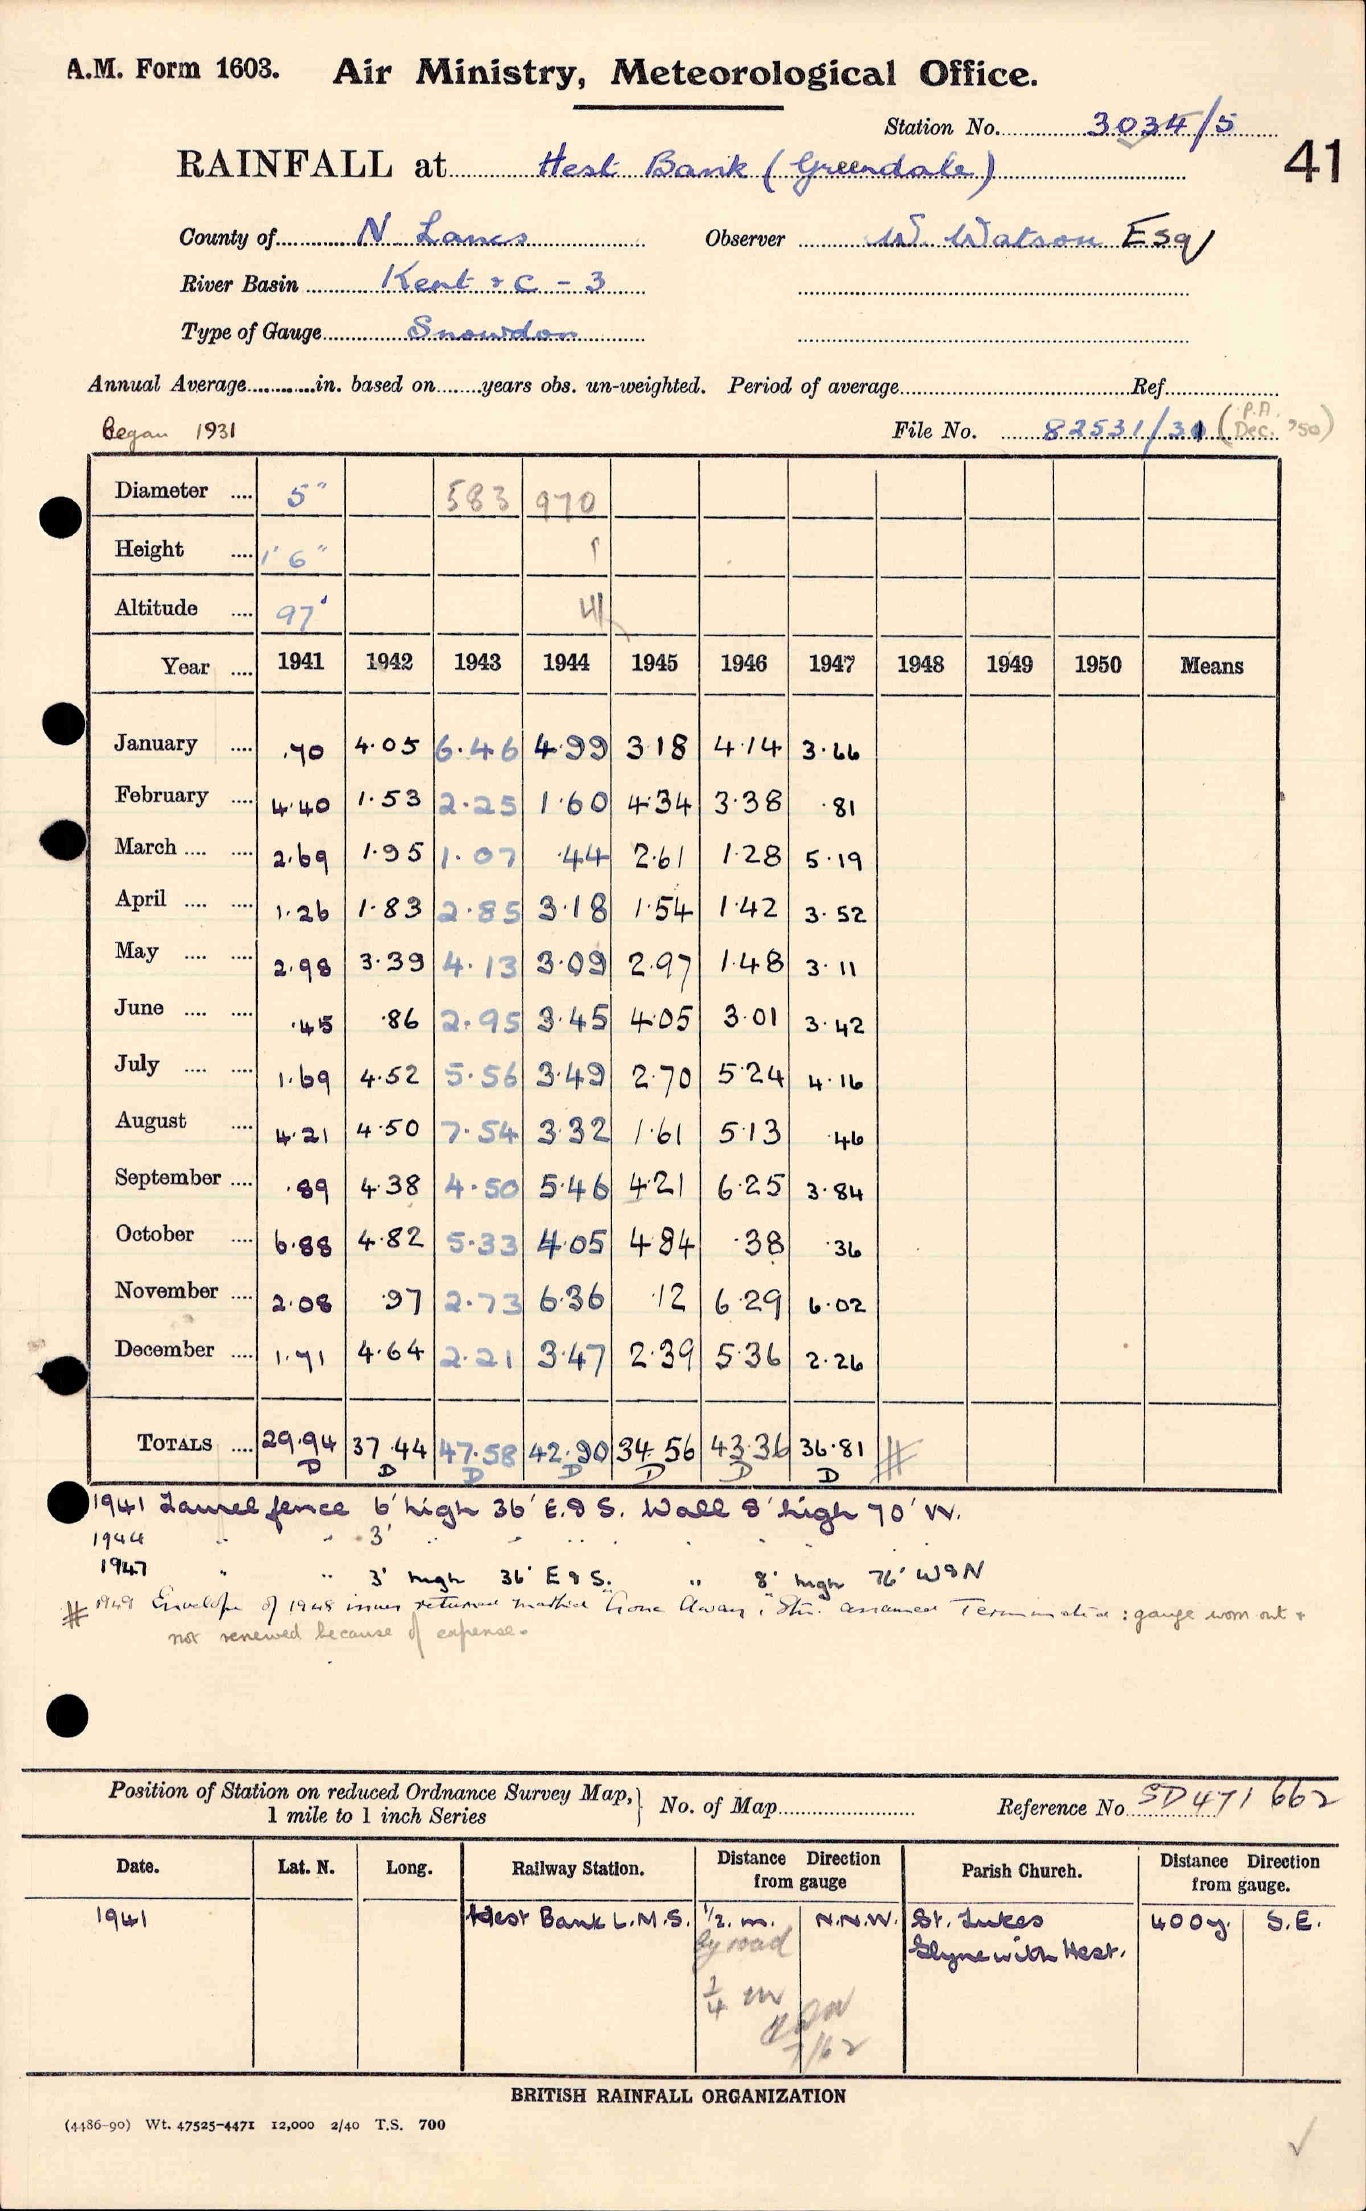 A.M. Form 1603. Air Ministry, Meteorological Office.
Station No. 3034/5
41
RAINFALL at Hest Bank (Greendale)
County of N Lancs Observer W. Watson Esq
River Basin Kent & C - 3
Type of Gauge Snowdon
Annual Average in. based on years obs. un-weighted. Period of average Ref
began 1931 File No. 82531/31 (P.A. Dec. '50)
Diameter 5" 583 970
Height 1' 6" 1
Altitude 97'
Year 1941 1942 1943 1944 1945 1946 1947 1948 1949 1950 Means
January .70 4.05 6.46 4.99 3.18 4.14 3.66
February 4.40 1.53 2.25 1.60 4.34 3.38 .81
March 2.69 1.95 1.07 .44 2.61 1.28 5.19
April 1.26 1.83 2.85 3.18 1.54 1.42 3.52
May 2.98 3.39 4.13 3.09 2.97 1.48 3.11
June .45 .86 2.95 3.45 4.05 3.01 3.42
July 1.69 4.52 5.56 3.49 2.70 5.24 4.16
August 4.21 4.50 7.54 3.32 1.61 5.13 .46
September .89 4.38 4.50 5.46 4.21 6.25 3.84
October 6.88 4.82 5.33 4.05 4.84 .38 .36
November 2.08 .97 2.73 6.36 .12 6.29 6.02
December 1.71 4.64 2.21 3.47 2.39 5.36 2.26
TOTALS 29.94 37.44 47.58 42.90 34.56 43.36 36.81 #
D D D D D D D
1941 Laurel fence 6' high 36' E. & S. Wall 8' high 70' W.
1944 " " 3' " " " " " "
1947 " " 3' high 36' E & S. " 8' high 76' W & N
# 1949 Envelope of 1948 issues returned marked "Gone Away". Stn. assumed Terminated: gauge worn out &
not renewed because of expense.
Position of Station on reduced Ordnance Survey Map,
1 mile to 1 inch Series
No. of Map Reference No SD 471 662
Date. Lat. N. Long. Railway Station. Distance Direction from gauge Parish Church. Distance Direction from gauge.
1941 Hest Bank L.M.S. 1/2. m. N.N.W. St. Lukes 400y. S.E.
by road Slyne with Hest.
3/4 m
7/62
BRITISH RAINFALL ORGANIZATION
(4486-90) Wt. 47525-4471 12,000 2/40 T.S. 700